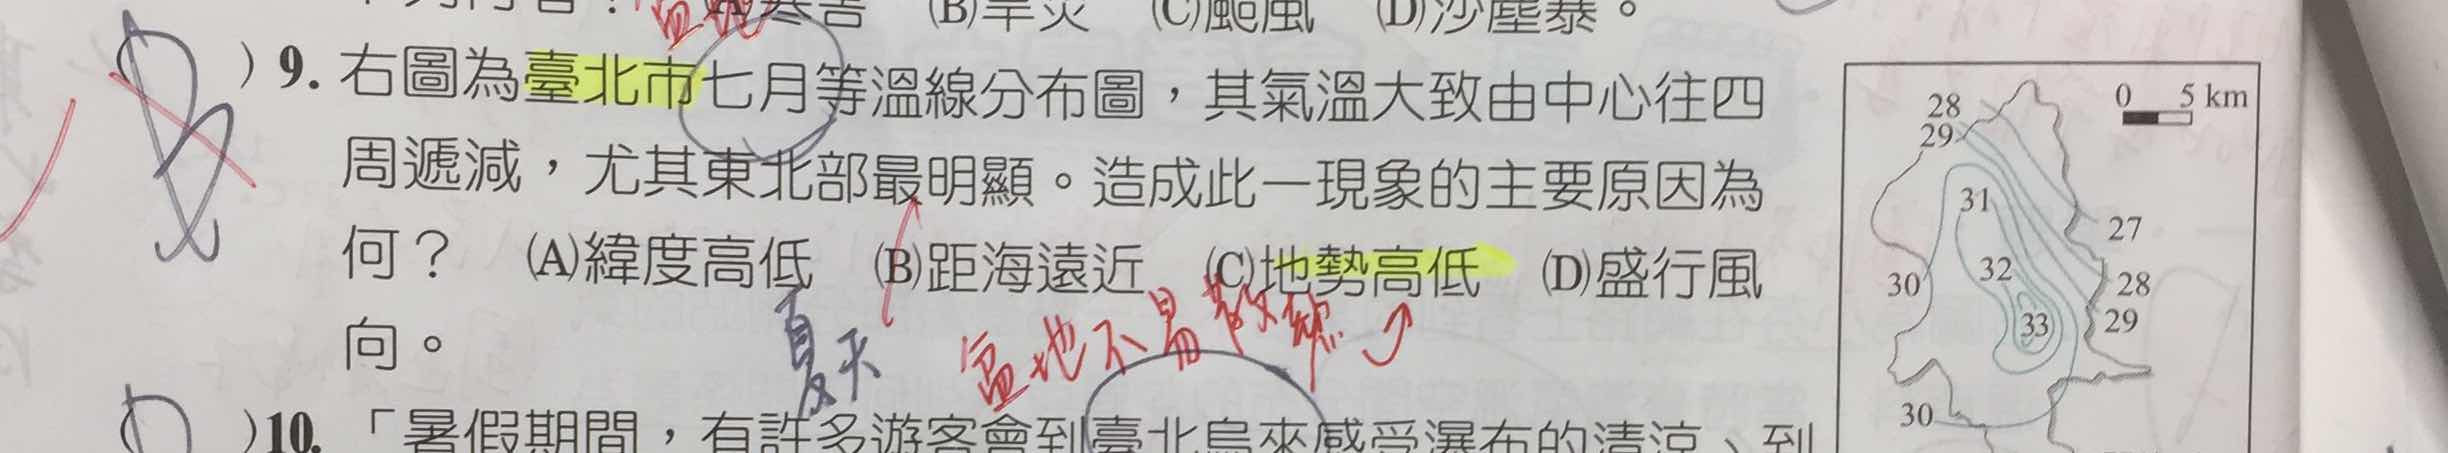 (B)旱災 (C)颱風 (D)沙塵暴。
盆地
)9. 右圖為臺北市七月等溫線分布圖,其氣溫大致由中心往四
周遞減,尤其東北部最明顯。造成此一現象的主要原因為
何? (A)緯度高低 (B)距海遠近 (C)地勢高低 (D)盛行風
向。
夏天
盆地不易散熱
)10. 「暑假期間,有許多遊客會到臺北烏來感受瀑布的清涼、到
0 5 km
28
29
31
27
32
30
28
33
29
30